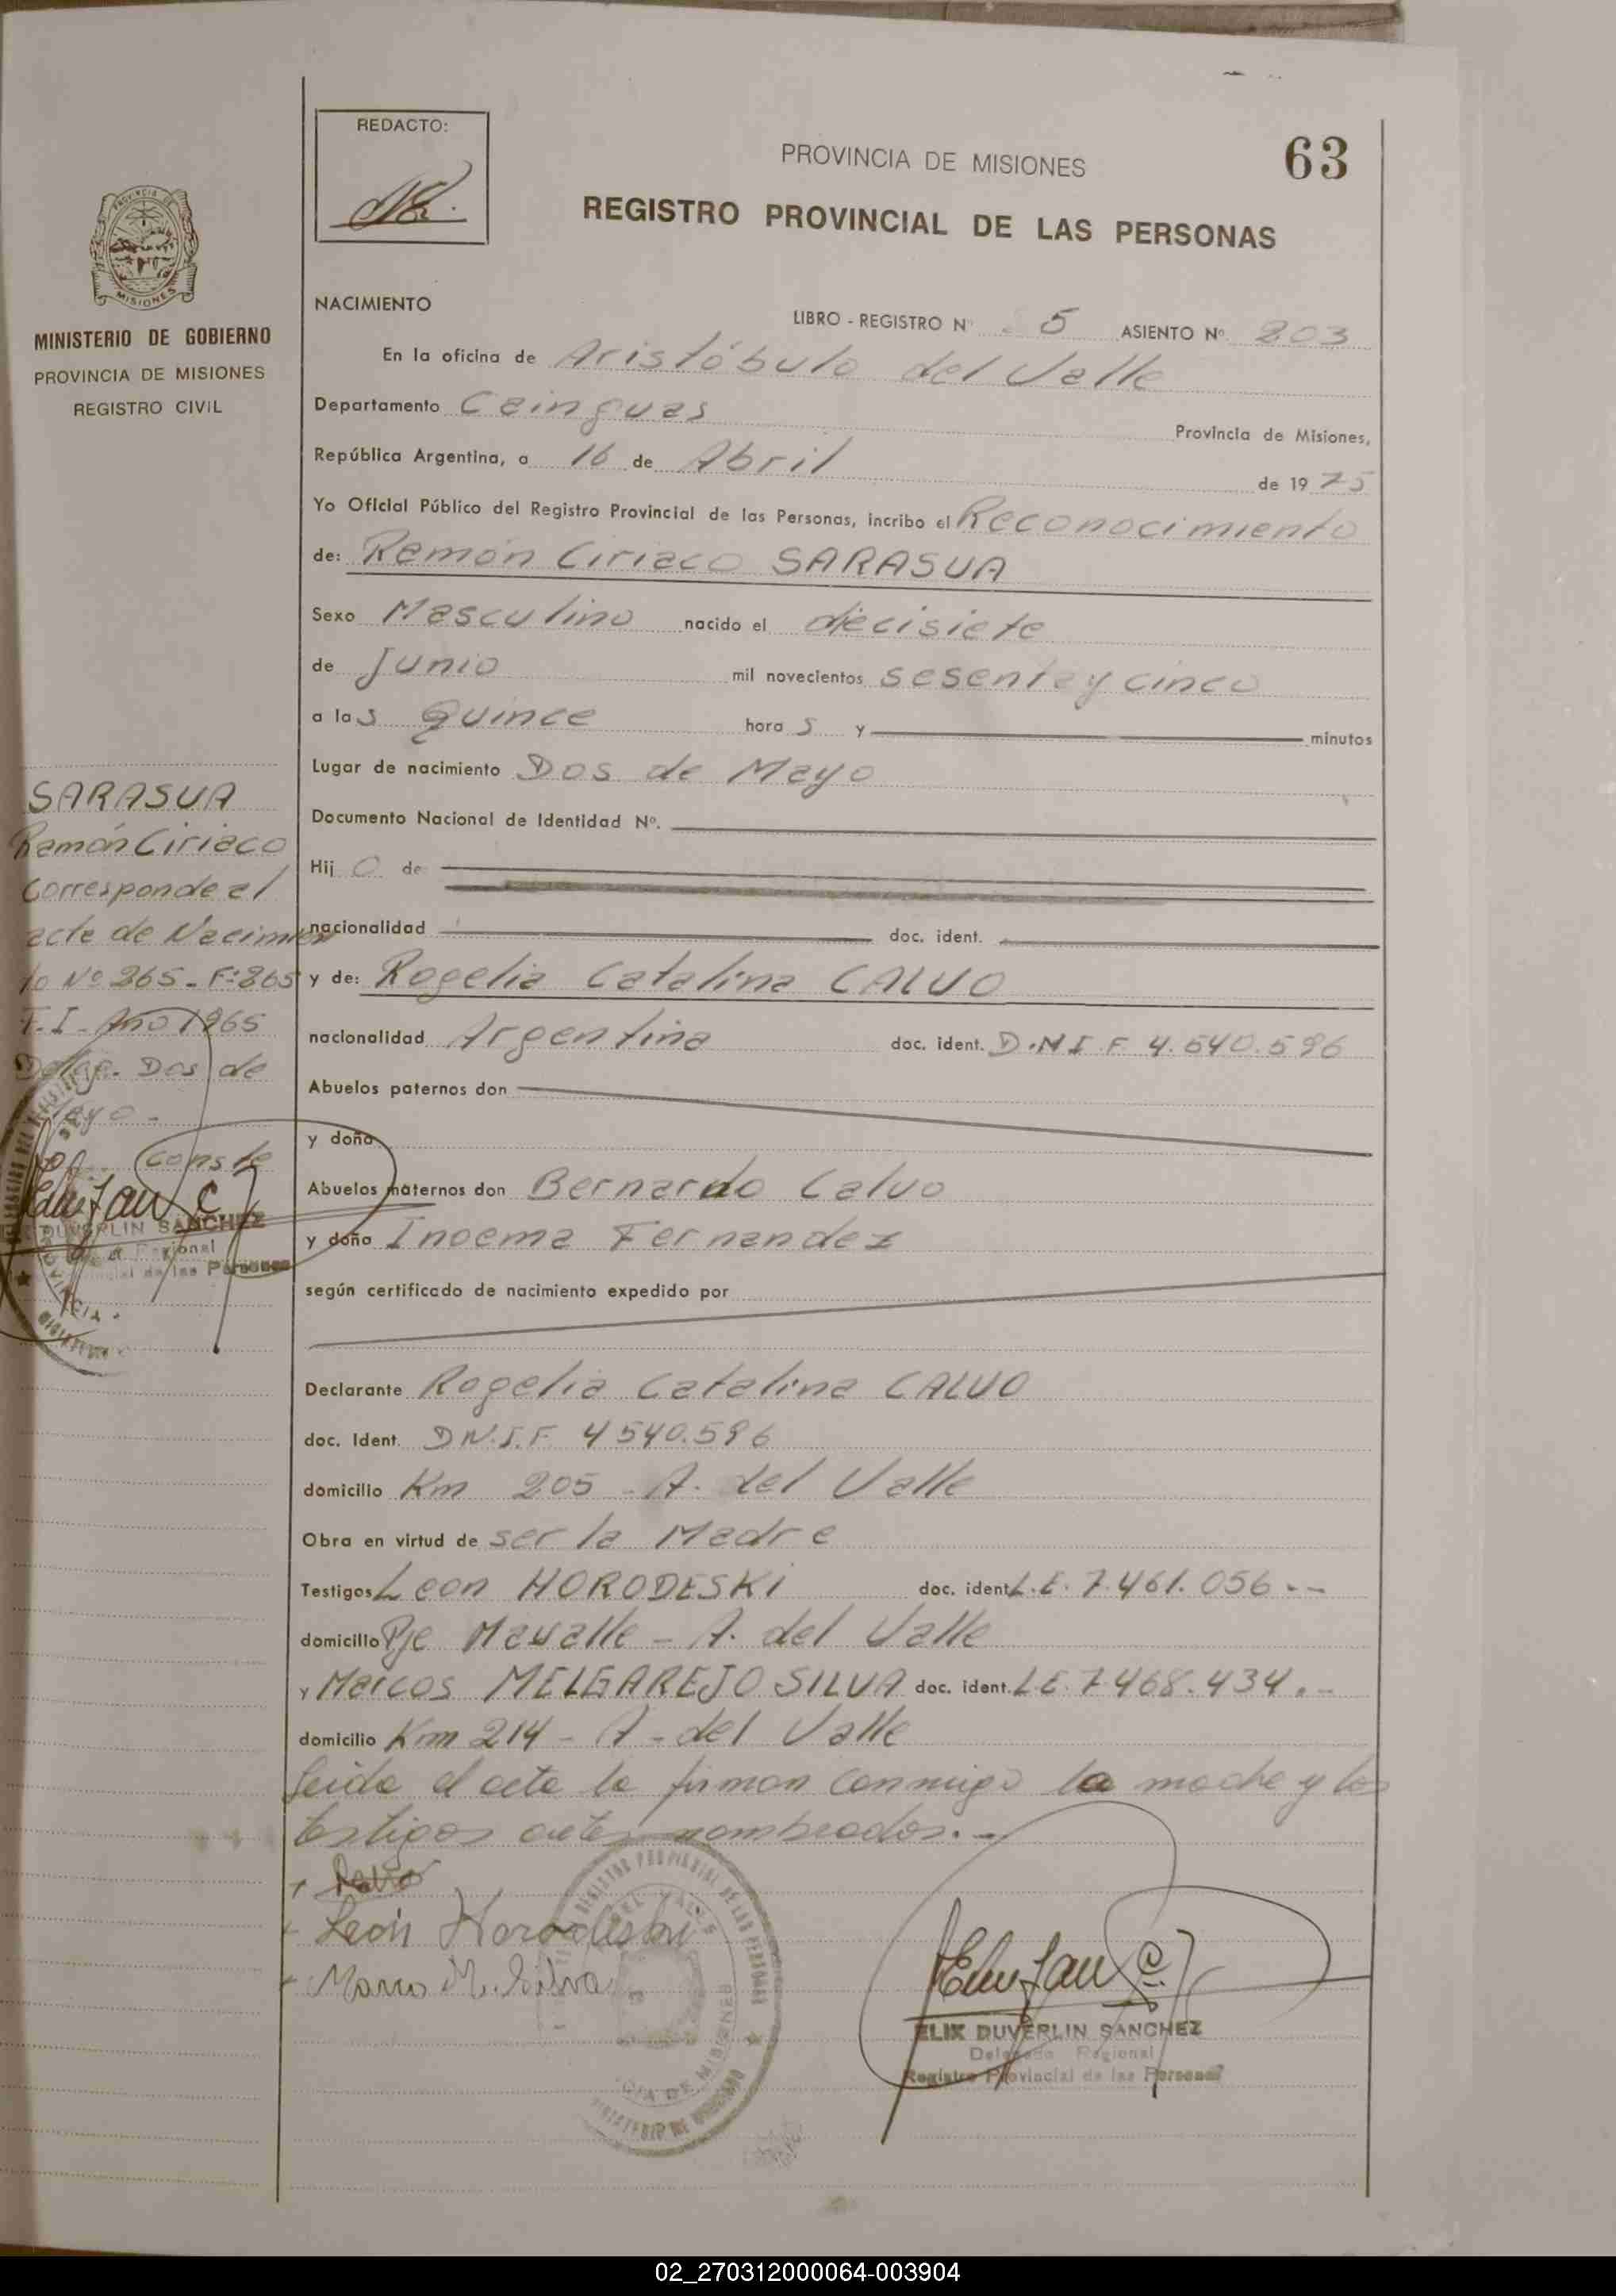 REDACTO:
PROVINCIA DE MISIONES
63
REGISTRO PROVINCIAL DE LAS PERSONAS
MISIONES
MINISTERIO DE GOBIERNO
PROVINCIA DE MISIONES
REGISTRO CIVIL
NACIMIENTO
LIBRO - REGISTRO Nº 5 ASIENTO Nº 203
En la oficina de Aristóbulo del Valle
Departamento Cainguas Provincia de Misiones,
República Argentina, a 16 de Abril de 1975
Yo Oficial Público del Registro Provincial de las Personas, incribo el Reconocimiento
de: Ramón Ciriaco SARASUA
Sexo Masculino nacido el diecisiete
de Junio mil novecientos sesenta y cinco
a las Quince horas y minutos
Lugar de nacimiento Dos de Mayo
Documento Nacional de Identidad Nº.
Hijo de
nacionalidad doc. ident.
y de: Rogelia Catalina CALVO
nacionalidad Argentina doc. ident. D.N.I.F 4.540.596
Abuelos paternos don
y doña
Abuelos maternos don Bernardo Calvo
y doña Inoema Fernandez
según certificado de nacimiento expedido por
Declarante Rogelia Catalina CALVO
doc. Ident. D.N.I.F. 4540.596
domicilio Km 205 - A. del Valle
Obra en virtud de ser la Madre
Testigos Leon HORODESKI doc. ident. L.E. 7.461.056.--
domicilio Pje Mavalle - A. del Valle
y Marcos MELGAREJO SILVA doc. ident. L.E. 7.468.434.-
domicilio Km 214 - A - del Valle
Leida el acta la firman conmigo la madre y los
testigos antes nombrados.-
León Horodeski
M. Silva
SARASUA
Ramón Ciriaco
Corresponde al
acta de Nacimien
to Nº 265 - F: 265
T. I - Año 1965
Delg. Dos de
Mayo -
Conste
DUVERLIN SANCHEZ
Regional
Provincial de las Personas
REGISTRO PROVINCIAL DE LAS PERSONAS
ELIX DUVERLIN SANCHEZ
Delegado Regional
Registro Provincial de las Personas
02_270312000064-003904